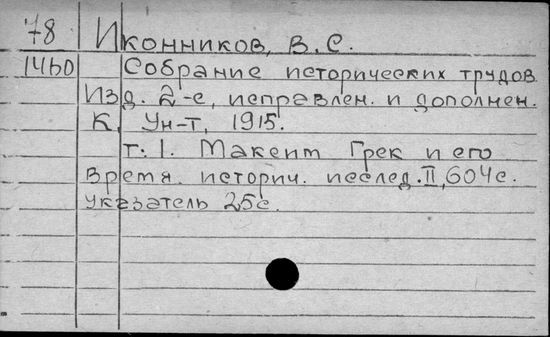 78 Иконников, В.С.
1460 Собрание исторических трудов
Изд. 2-е, исправлен. и дополнен.
К, Ун-т, 1915.
т. 1. Максим Грек и его
время. истори. исслед. II, 604с.
указатель 25с.